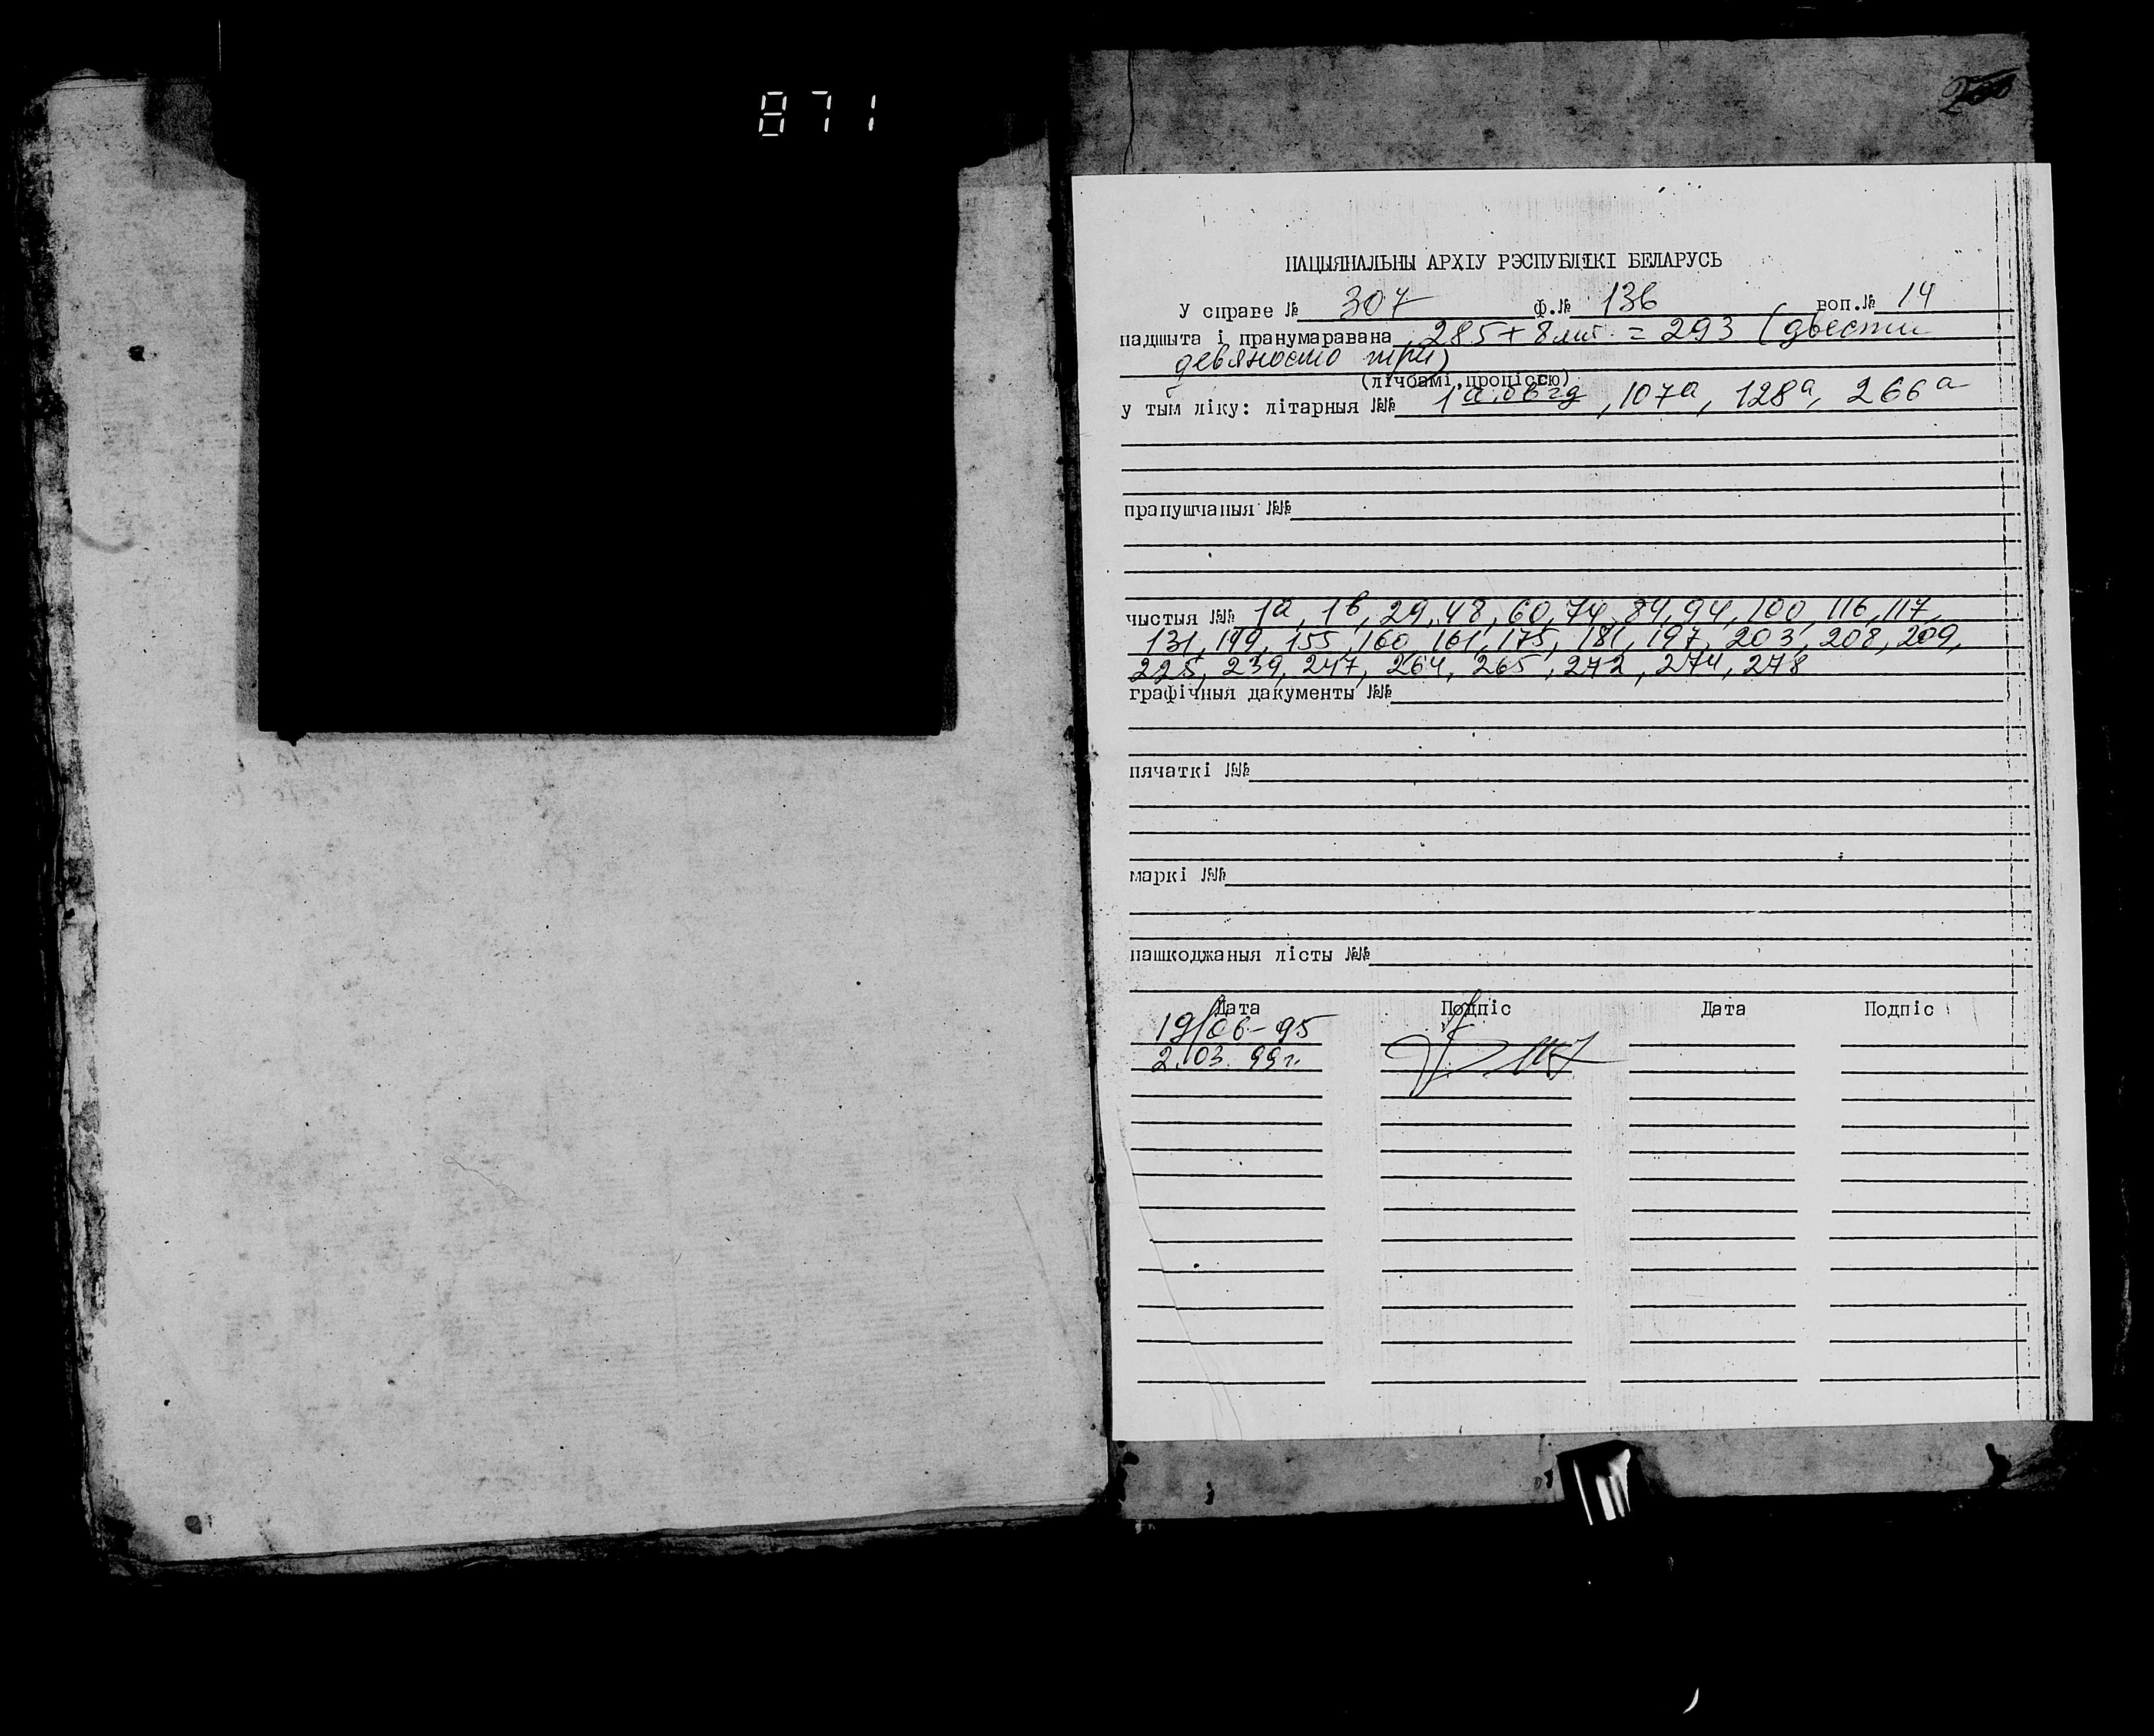 871
НАЦЫЯНАЛЬНЫ АРХІУ РЭСПУБЛІКІ БЕЛАРУСЬ
У справе № 307 Ф.№ 136 воп.№ 14
падшыта і пранумаравана 285 + 8 лит. = 293 (двести
девяносто три)
(лічбамі, проціссю)
у тым ліку: літарныя №№ 1а,б в г д, 107а, 128а, 266а
прапушчаныя №№
чыстыя №№ 1а, 1в, 29, 48, 60, 74, 84, 94, 100, 116, 117,
131, 149, 155, 160, 161, 175, 181, 197, 203, 208, 209,
225, 239, 247, 264, 265, 272, 274, 278
графічныя дакументы №№
пячаткі №№
маркі №№
пашкоджаныя лісты №№
Дата Подпіс Дата Подпіс
19/06-95
2.03.99г.